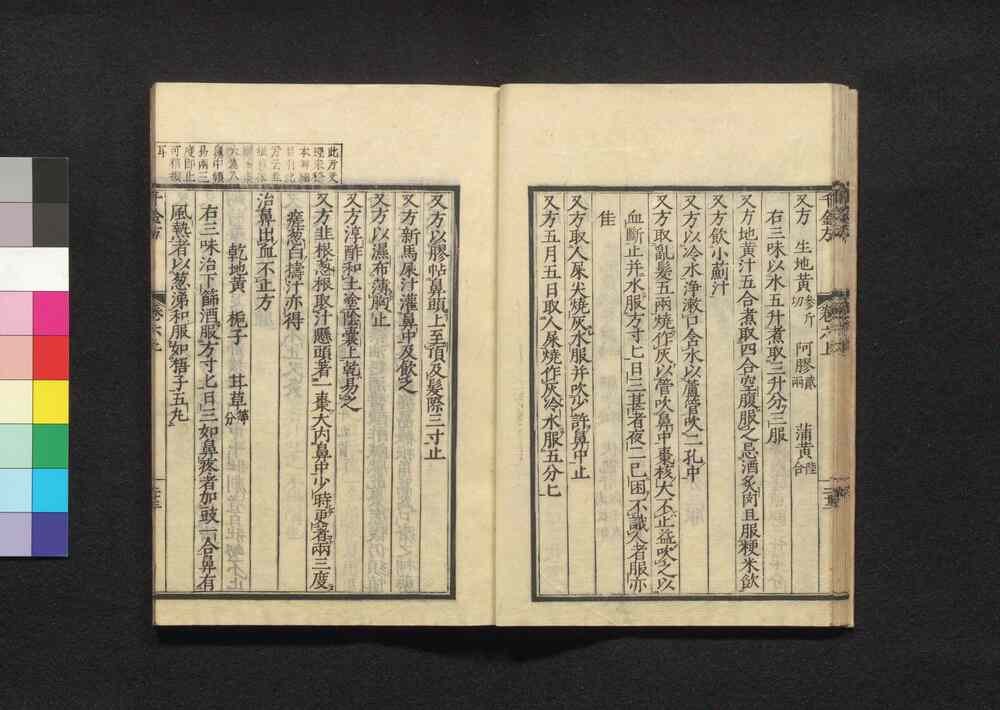 又方 生地黃 參斤切 阿膠 貳兩 蒲黃 陸合
右三味以水五升煮取三升分三服
又方地黃汁五合煮取四合空腹服之忌酒炙肉且服粳米飲
又方飲小薊汁
又方以冷水淨漱口含水以蘆管吹二孔中
又方取亂髮五兩燒作灰以管吹鼻中棗核大不止益吹之以
血斷止并水服方寸匕日三甚者夜二已困不識人者服亦
佳
又方取人屎尖燒灰水服并吹少許鼻中止
又方五月五日取人屎燒作灰冷水服五分匕
千金方 卷六上
又方以膠帖鼻頭上至頂及髮際三寸止
又方新馬屎汁灌鼻中及飲之
又方以濕布薄胸止
又方淳酢和土塗陰囊上乾易之
又方韭根葱根取汁懸頭著一棗大內鼻中少時更著兩三度
瘥葱白擣汁亦得
治鼻出血不止方
乾地黃 梔子 甘草 等分
右三味治下篩酒服方寸匕日三如鼻疼者加豉一合鼻有
風熱者以葱涕和服如梧子五丸
千金方 卷六上